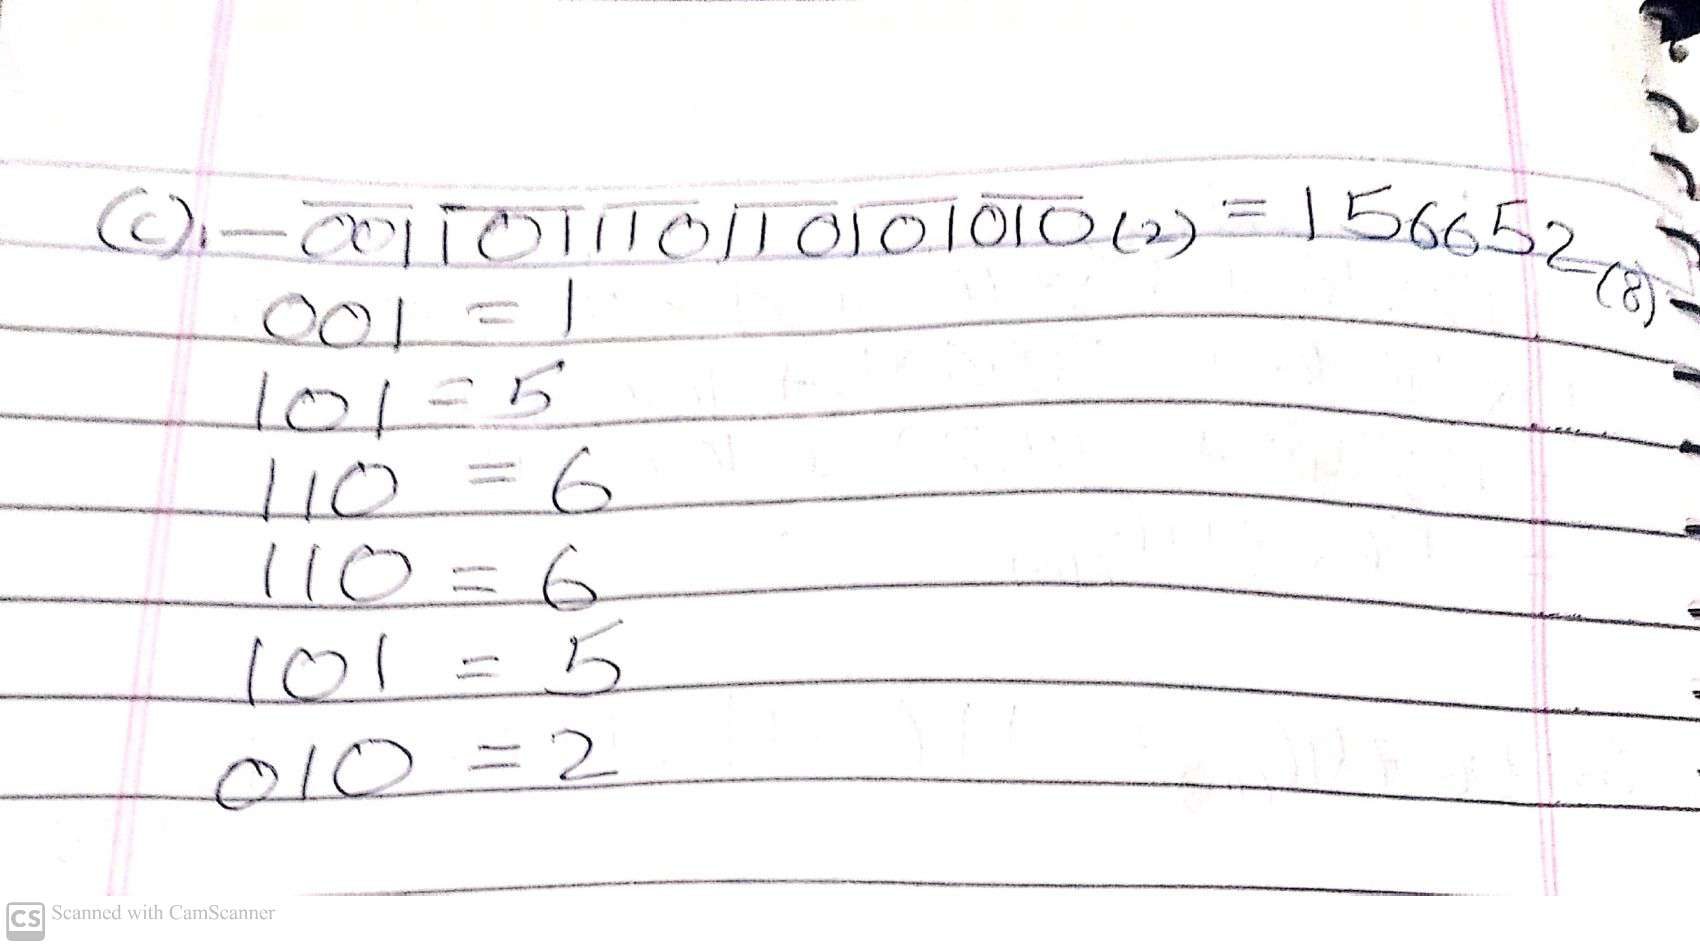 (c).- 001101110110101010 (2) = 156652 (8)
001 = 1
101 = 5
110 = 6
110 = 6
101 = 5
010 = 2
CS Scanned with CamScanner